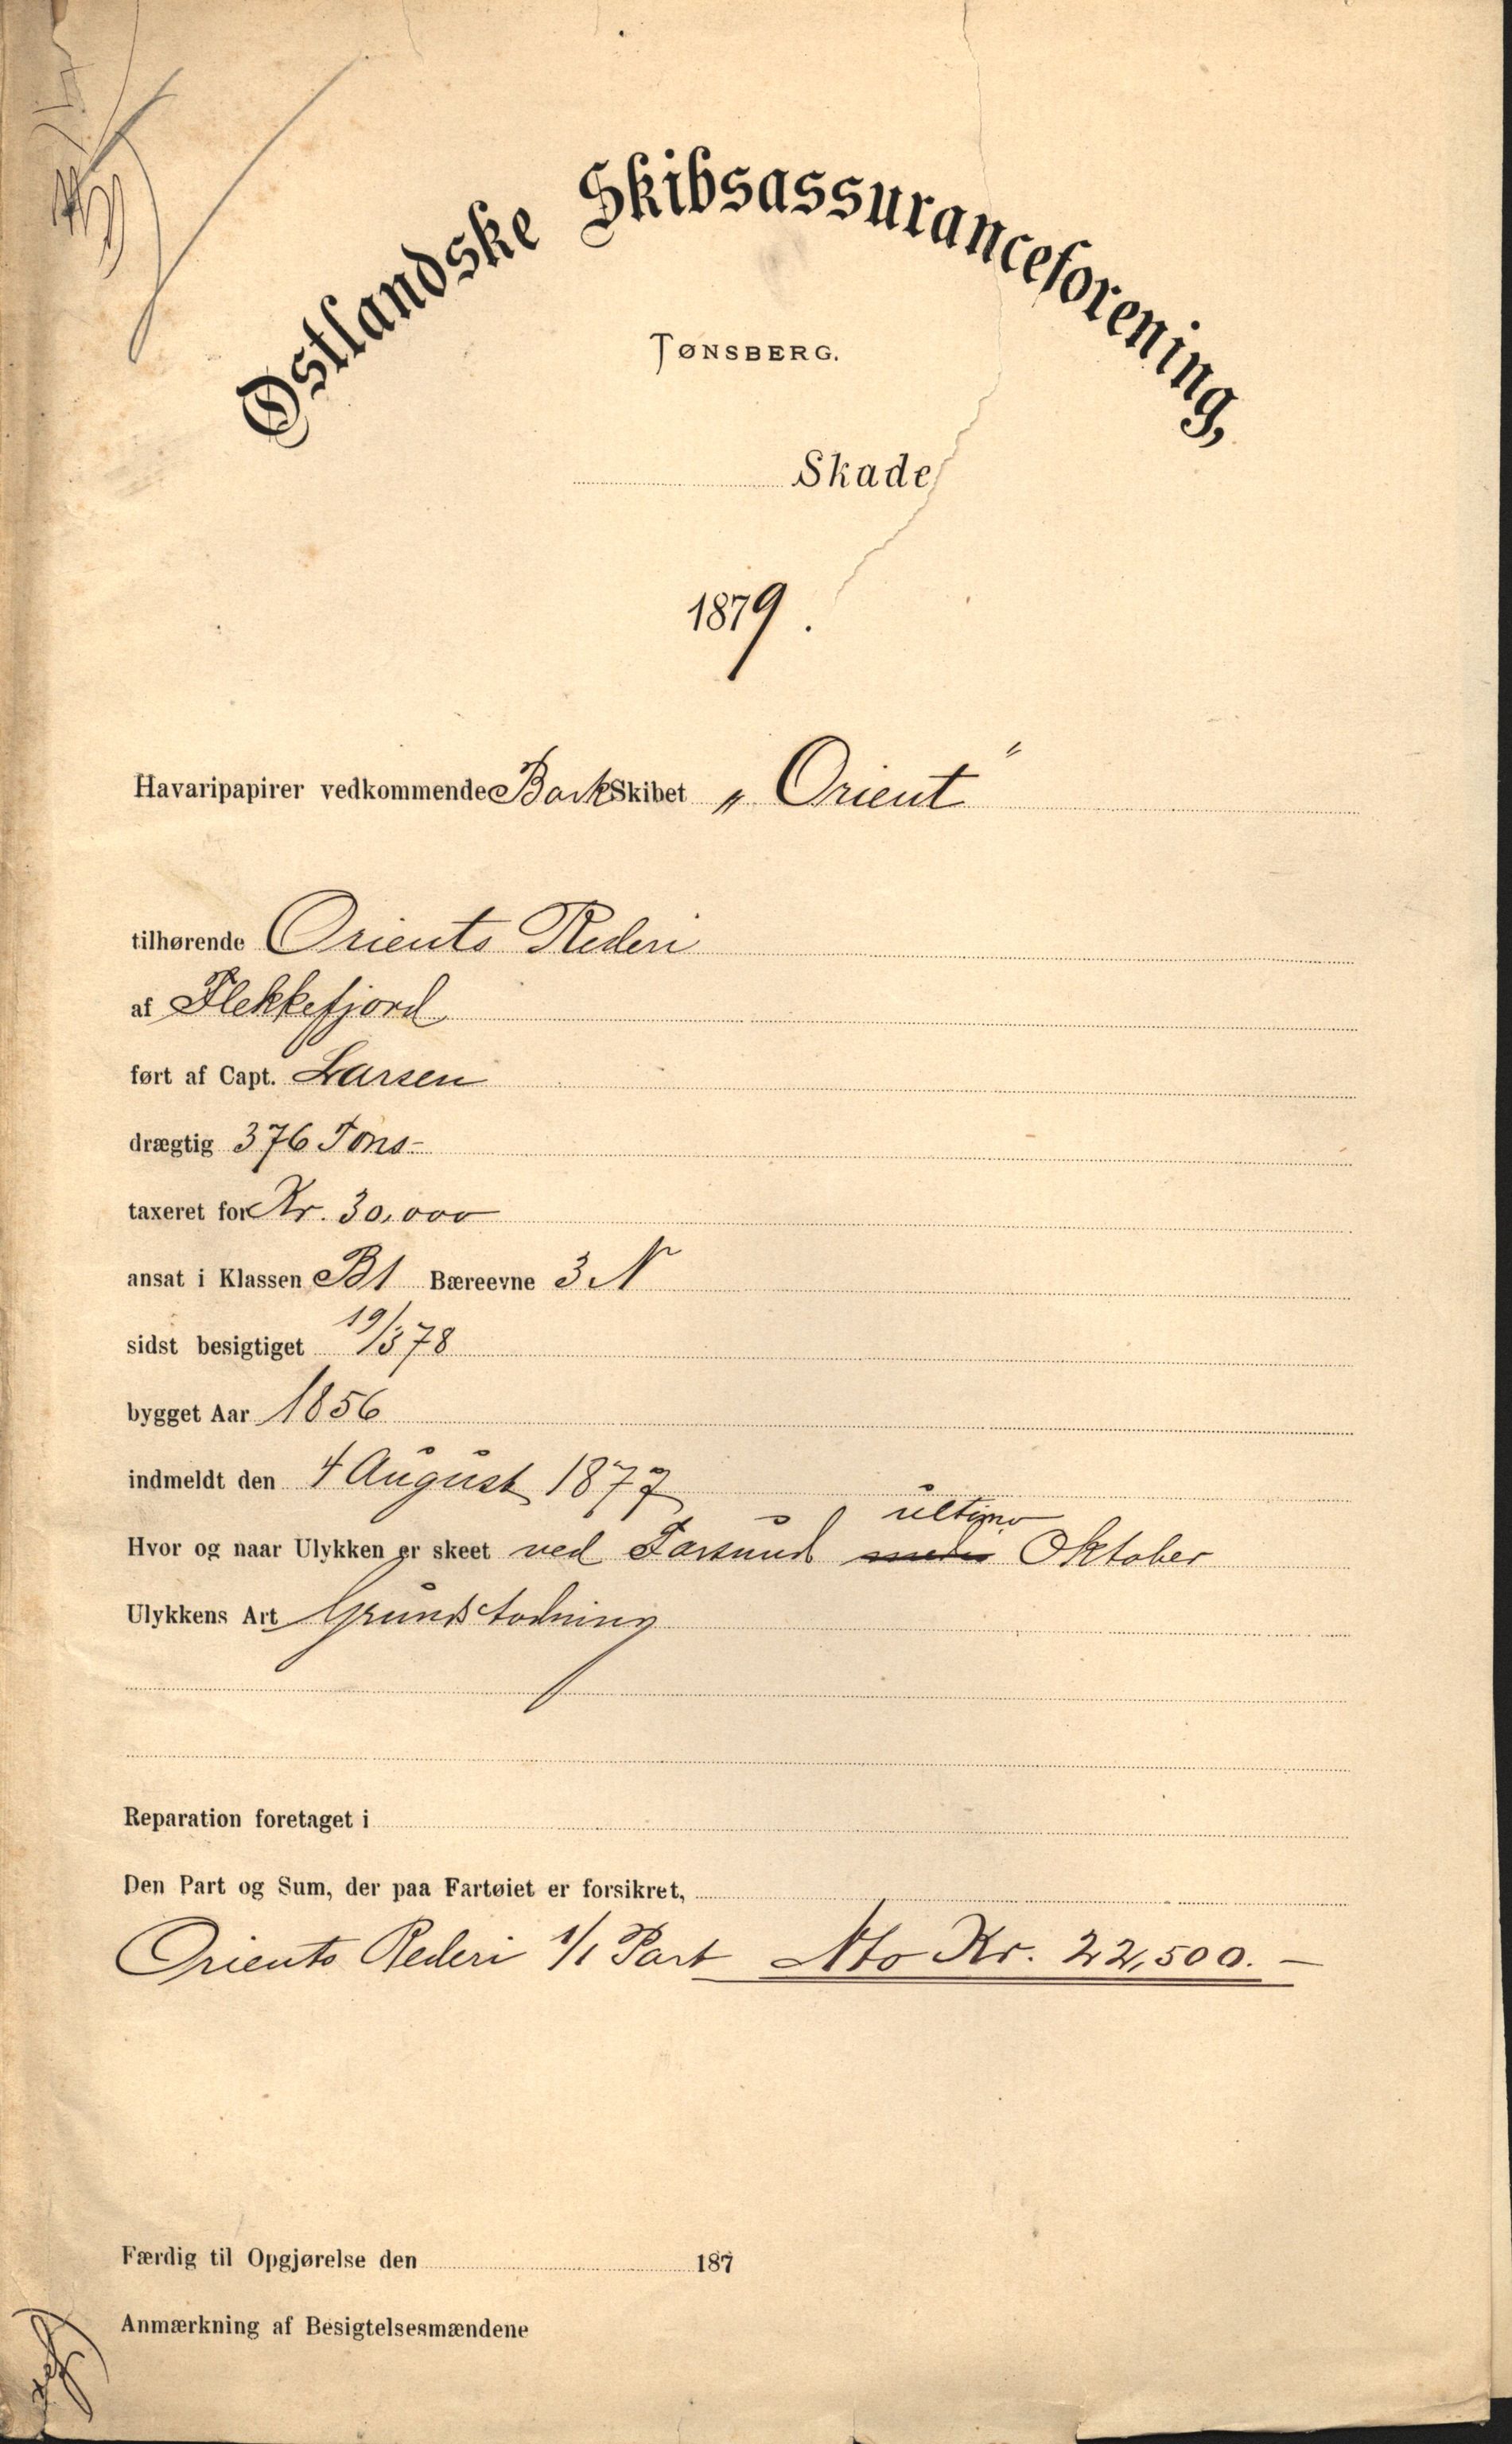 Østlandske Skibsassuranceforening,
TØNSBERG.
Skade
1879.
Havaripapirer vedkommende Bark Skibet „Orient"
tilhørende Orients Rederi
af Flekkefjord
ført af Capt. Larsen
drægtig 376 Tons-
taxeret for Kr. 30,000
ansat i Klassen B1 Bæreevne 3 N
sidst besigtiget 19/3 78
bygget Aar 1856
indmeldt den 4 August 1877
ultimo
Hvor og naar Ulykken er skeet ved Farsund Oktober
Ulykkens Art Grundstødning
Reparation foretaget i
Den Part og Sum, der paa Fartøiet er forsikret,
Orients Rederi 1/1 Part Nto Kr. 22,500.—
Færdig til Opgjørelse den 187
Anmærkning af Besigtelsesmændene